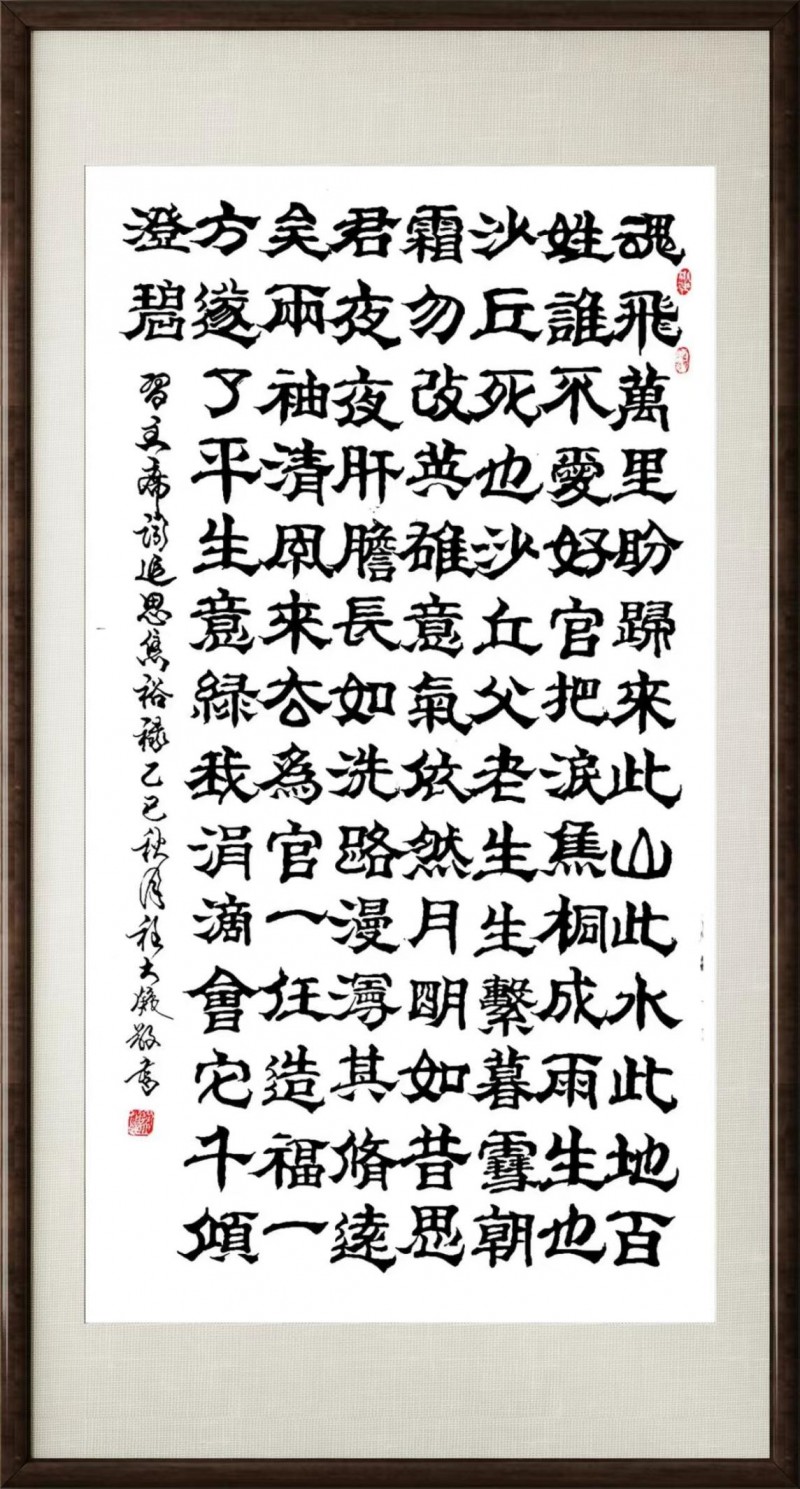 魂飛萬里盼歸來此山此水此地百
姓誰不愛好官把淚焦桐成雨生也
沙丘死也沙丘父老生生繫暮雪朝
霜勿改英雄意氣依然月明如昔思
君夜夜肝膽長如洗路漫漫其脩遠
矣兩袖清風來去爲官一任造福一
方遂了平生意綠我涓滴會它千頃
澄碧
習主席詞追思焦裕祿乙巳秋月程大敬書